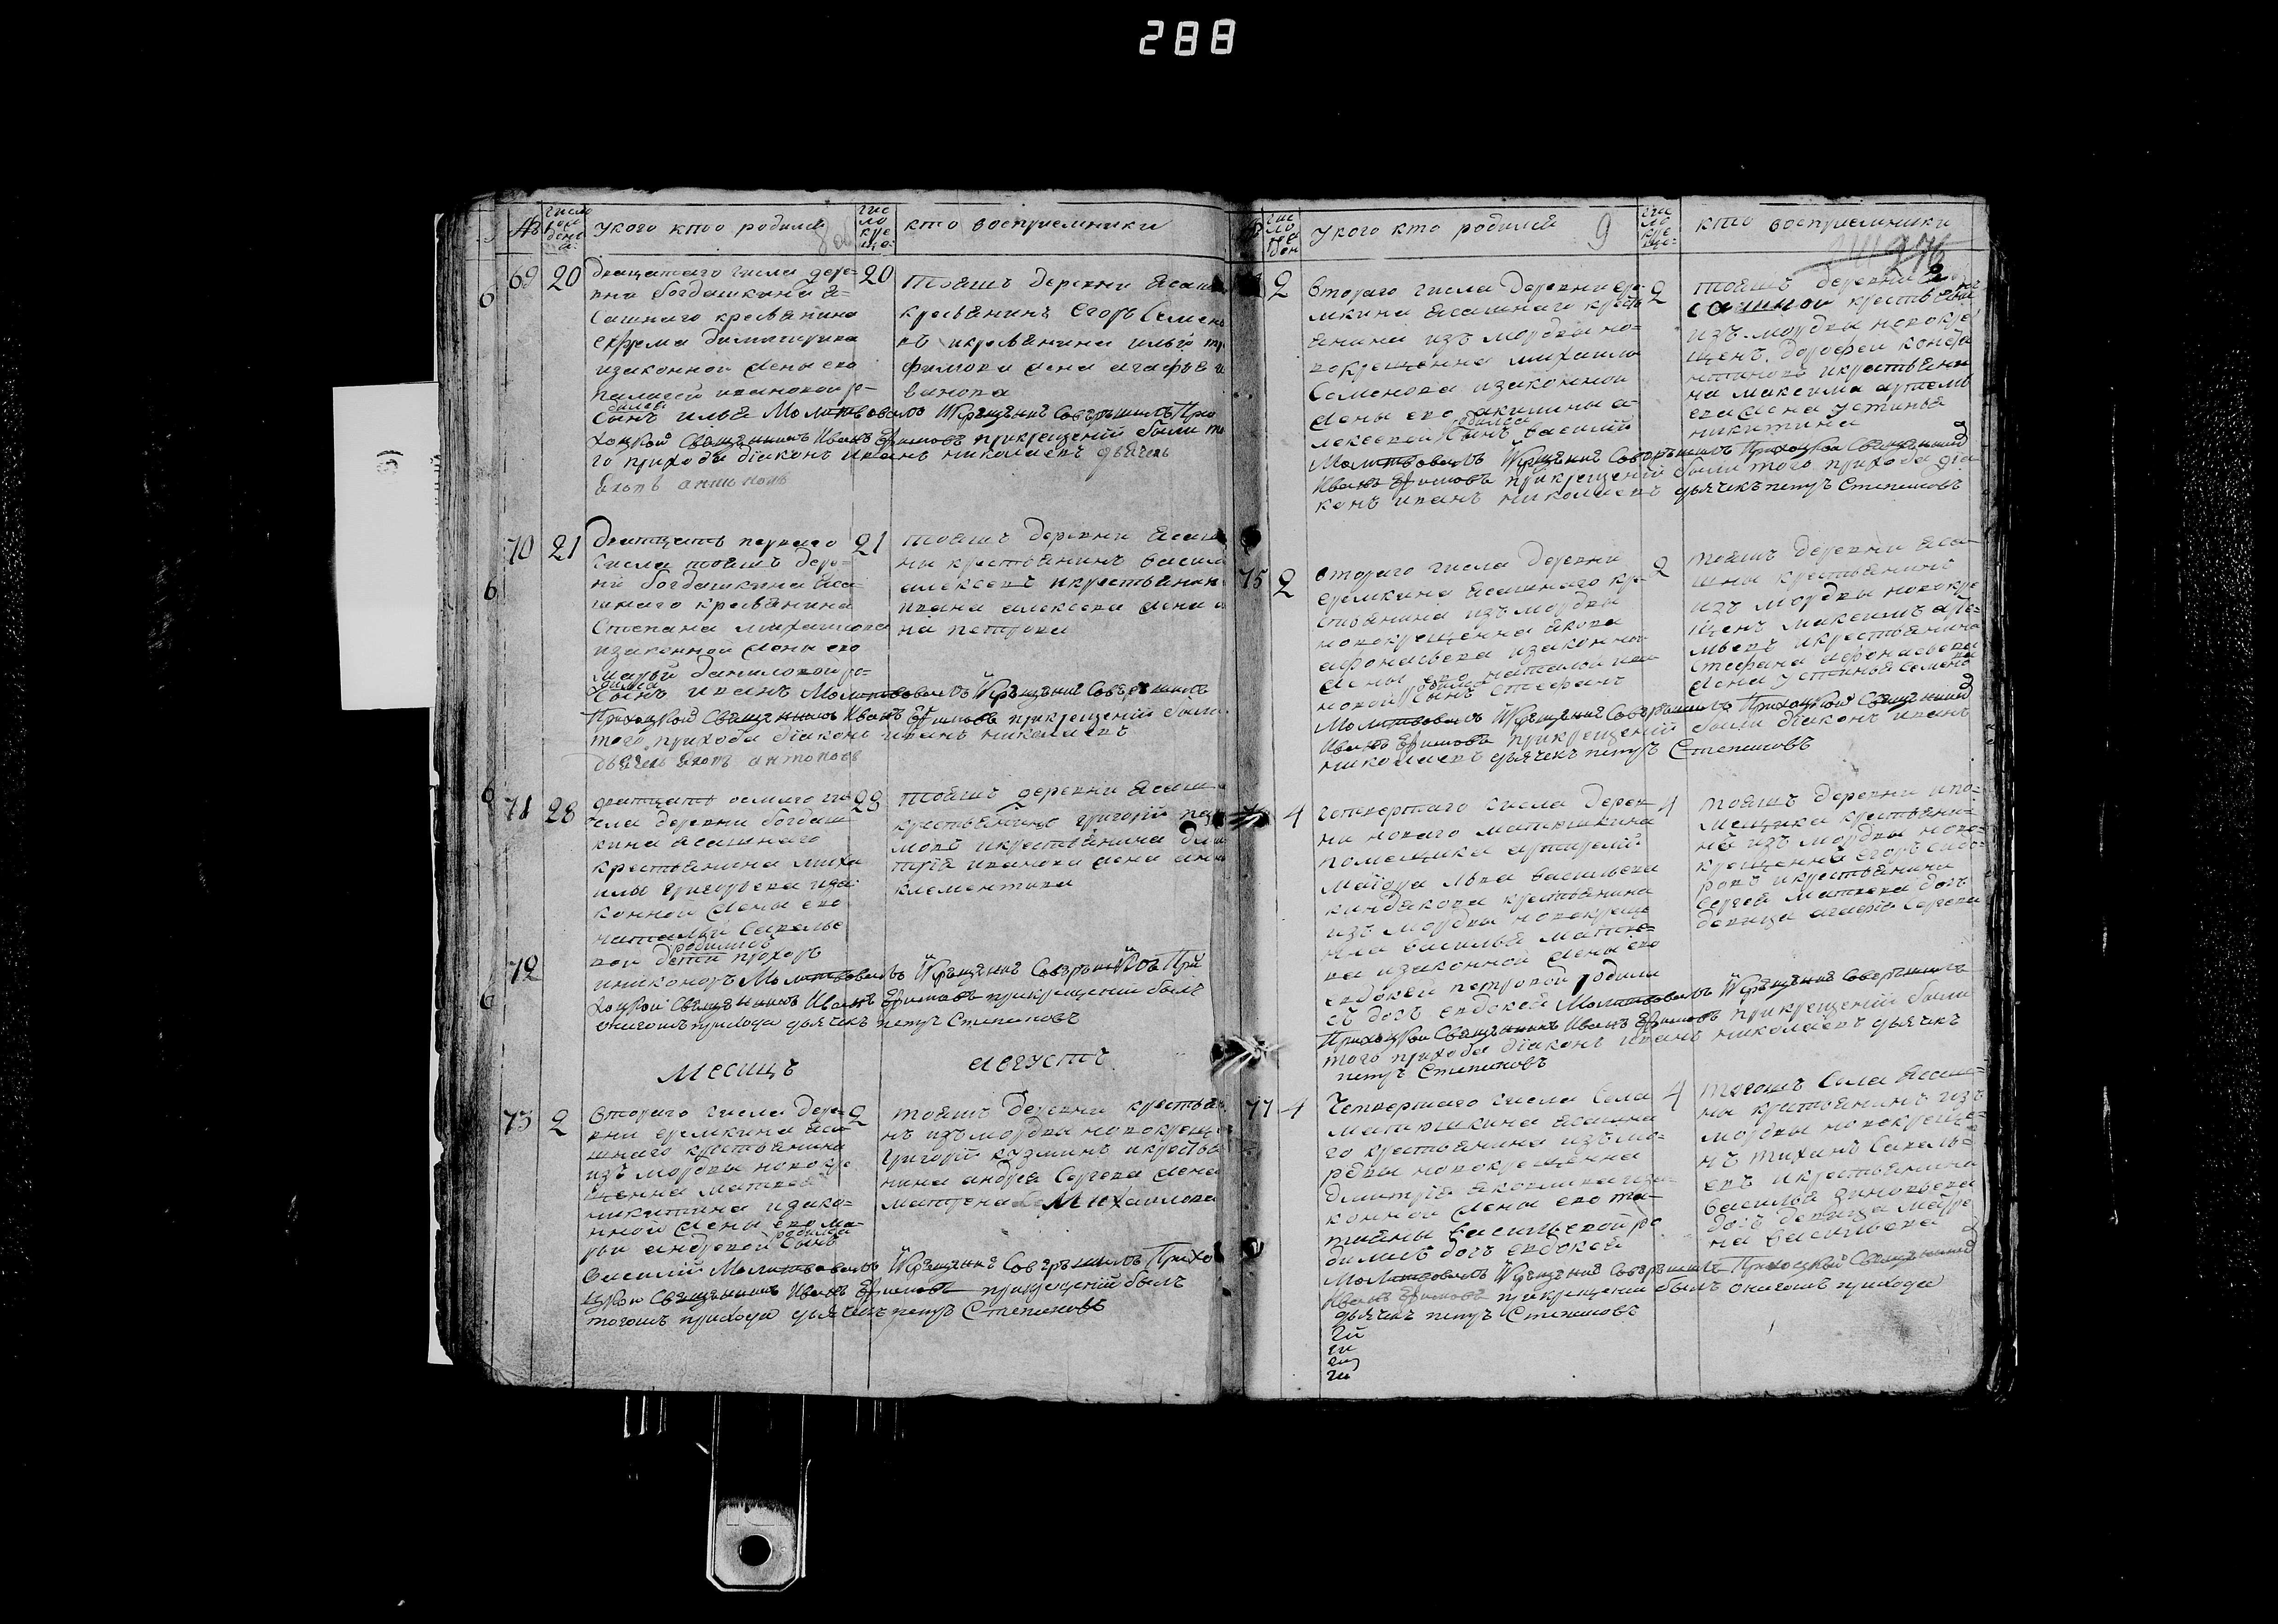 288
№
число рождения
у кого кто родился
8 об
число крещения
кто восприемники
69 20
двацатаго числа дере-
вни богдашкина я-
сашнаго кресьянина
ефрема димитриева
изаконной жены его
ивановой ро-
дился
сынъ илья Молитвовалъ И крещение совершилъ При
ходской Священникъ Иванъ Ефимовъ при крещении были то
го прихода діаконъ иванъ николаевъ дьячекъ
яковъ антоновъ
20
тояжъ деревни ясаш
кресьянинъ егоръ семено
въ икресьянина ильи тро
фимова жена агафья и
ванова
70 21
дватцать перваго
числа тояжъ дере-
ни богдашкина яса-
шнаго кресьянина
Степана михаилова
изаконной жены его
марьи даниловой ро-
дился
сынъ иванъ Молитвовалъ И крещение совершилъ
Приходской Священникъ Иванъ Ефимовъ при крещении были
того прихода діаконъ иванъ николаевъ
дьячекъ яковъ антоновъ
21
тояжъ деревни ясаш
ны крестьянинъ васили
алексеевъ икрестьянин
ивана алексеева жена а
на петрова
71 28
дватцать осмаго чи-
села деревни богдаш
кина ясашнаго
крестьянина миха
илы григорьева иза
конной жены его
натальи савелье
родились
вой дети прохоръ
72
иниконоръ Молитвовалъ И крещение совершилъ При
ходской Священникъ Иванъ Ефимовъ при крещении былъ
оногожъ прихода дьячекъ петръ Степановъ
28
тояжъ деревни ясаш
крестьянинъ григорій
мовъ икрестьянина дми
трія иванова жена анна
клементиева
месицъ августъ
73 2
втораго числа дере-
вни еремкина яса-
шнаго крестьянина
изъ мордвы новокре
щенна матвея
никитина изако-
нной жены его ма-
родился
рьи андреевой сынъ
василій Молитвовалъ И крещение совершилъ Прихо
дской Священникъ Иванъ Ефимовъ при крещении былъ
тогожъ прихода дьячекъ петръ Степановъ
2
тояжъ деревни крестьян
нъ изъ мордвы новокреще
григорій кузминъ икрестья
нина андрея Сергеева жена
матрена Михаилова
у кого кто родился 9
кто восприемники
276
2
втораго числа деревни ере
мкина ясашнаго кресть
янина изъ мордвы но-
вокрещенна михаилы
Семенова изаконной
жены его акилины а-
родился
лексеевой сынъ василий
Молитвовалъ И крещение совершилъ Приходской Священникъ
Иванъ Ефимовъ при крещении были того прихода діа
конъ иванъ николаевъ дьячекъ петръ Степановъ
2
тояжъ деревни
сашной крестьянин
изъ мордвы новокре
щенъ дорофеи конста
нтиновъ икрестьяни
на максима артемь
ева жена устинья
никитина
75 2
втораго числа деревни
еремкина ясашнаго кре-
стьянина изъ мордвы
новокрещенна якова
афонасьева изаконной
жены его натальи ива
родился
новой сынъ стефанъ
Молитвовалъ И крещение совершилъ Приходской Священникъ
Иванъ Ефимовъ при крещении были діаконъ иванъ
николаевъ дьячекъ петръ Степановъ
2
тояжъ деревни яса-
шны крестьянинъ
изъ мордвы новокре
щенъ максимъ арте-
мьевъ икрестьянина
стефана афонасьева
жена устинья семено
ва
4
четвертаго числа дерев
ни новаго матюшкина
помещика артилеріи
маіора льва васильева
киндякова крестьянина
изъ мордвы новокреще
нна василья матве-
ва изаконной жены его
евдокеи петровой родила
съ дочь евдокея Молитвовалъ И крещение совершилъ
Приходской Священникъ Иванъ Ефимовъ при крещении были
того прихода діаконъ иванъ николаевъ дьячекъ
петръ Степановъ
4
тояжъ деревни ипо-
мещика крестьяни-
нъ изъ мордвы ново-
крещенна егоръ сидо-
ровъ икрестьянина
Сергея матвеева дочь
девица агафія Сергеева
77 4
Четвертаго числа села
матюшкина ясашна
го крестьянина изъ мо-
рдвы новокрещенна
дмитрія яковлева иза
конной жены его та-
тияны васильевой ро
дилась дочь евдокея
Молитвовалъ И крещение совершилъ Приходской Священникъ
Иванъ Ефимовъ при крещении былъ оногожъ прихода
дьячекъ петръ Степановъ
4
тогожъ села ясаш-
ны крестьянинъ изъ
мордвы новокреще-
нъ тиханъ савель-
евъ икрестьянина
василья зиновьева
дочь девица матре
на васильева